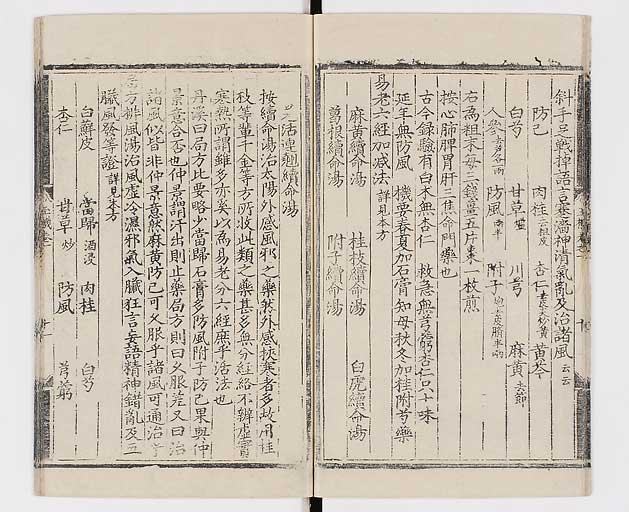 斜手足戰掉語言蹇澁神清氣亂及治諸風 云云
防己 肉桂 去粗皮 杏仁 去皮尖炒黃 黃芩
白芍 甘草 川芎 麻黃 去節
人參 各一兩 防風 兩半 附子 炮去皮臍半兩
右爲粗末每三錢薑五片棗一枚煎
按心肺脾胃肝三焦命門藥也
古今錄驗有白朮無杏仁 救急無芎藭杏仁只十味
延年無防風 機要春夏加石膏知母秋冬加桂附芍藥
易老六經加减法 詳見本方
麻黃續命湯 桂枝續命湯 白虎續命湯
葛根續命湯 附子續命湯
羌活連翹續命湯
按續命湯治太陽外感風邪之藥然外感挾寒者多故用桂
枝等輩千金等方所收此類之藥甚多無分經絡不辨虛實
寒熱所謂雖多亦奚以爲易老分六經庶乎活法也
丹溪曰局方比要略少當歸石膏多防風附子防己果與仲
景意合否也仲景謂汗出則止藥局方則曰久服差又曰治
諸風似皆非仲景意然麻黃防己可久服乎諸風可通治
方排風湯治風虛冷濕邪氣入臟狂言妄語精神錯亂及五
臟風發等證 詳見本方
白蘚皮 當歸 酒浸 肉桂 白芍
杏仁 甘草 炒 防風 芎藭